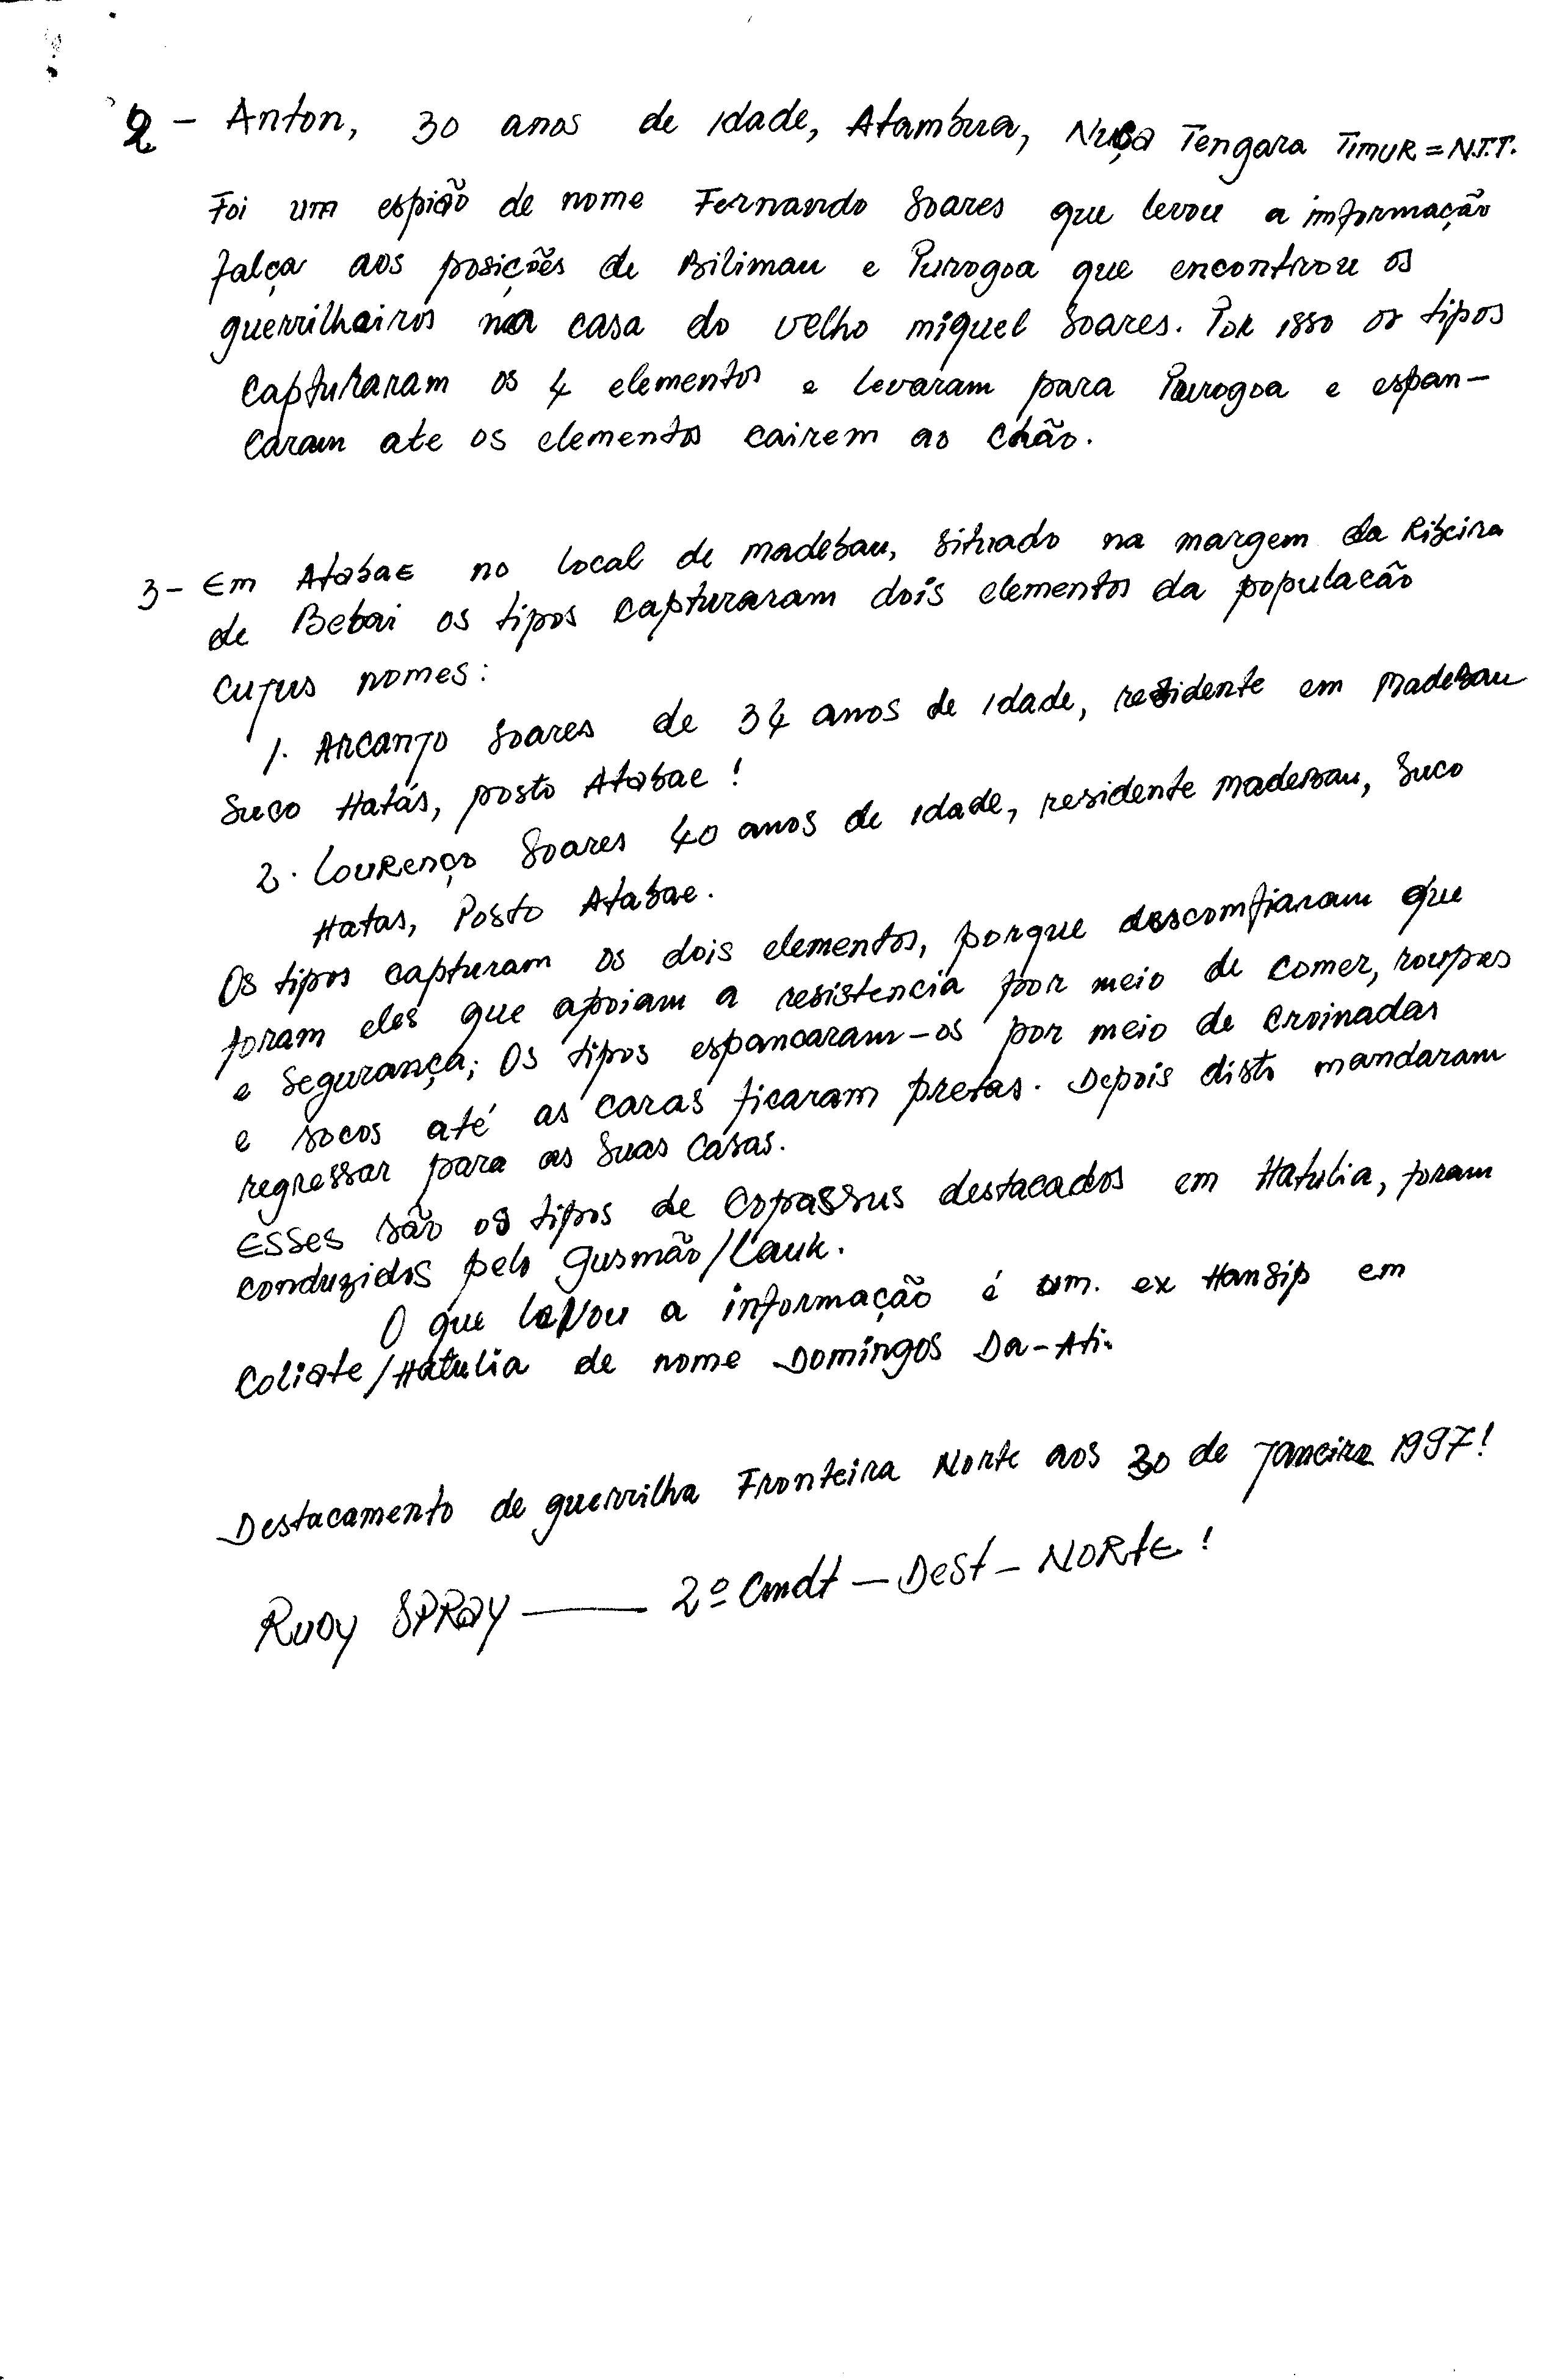 2 - Anton, 30 anos de idade, Atambua, Nuça Tengara Timur = N.T.T.
Foi um espião de nome Fernando Soares que levou a informação
falça aos posições de Bilimau e Purogoa que encontrou os
guerrilhairos na casa do velho miguel Soares. Por isso os tipos
capturaram os 4 elementos e levaram para Purogoa e espan-
caram ate os elementos cairem ao chão.
3 - Em Atabae no local de madebau, situado na margem da Ribeira
de Bebai os tipos capturaram dois elementos da populacão
cujus nomes:
1. Arcanjo Soares de 34 anos de idade, residente em Madebau
Suco Hatás, posto Atabae!
2. Lourenço Soares 40 anos de idade, residente madebau, Suco
Hatas, Posto Atabae.
Os tipos capturam os dois elementos, porque desconfiaram que
foram eles que apoiam a resistencia por meio de comer, roupas
e segurança; Os tipos espancaram-os por meio de croinadas
e socos até as caras ficaram pretas. Depois disto mandaram
regressar para as suas casas.
Esses são os tipos de Copassus destacados em Hatulia, foram
conduzidos pelo Gusmão/Lauk.
O que levou a informação é um. ex Hansip em
Coliate/Hatulia de nome Domingos Da-Ati.
Destacamento de guerrilha Fronteira Norte aos 30 de Janeiro 1997!
Rudy Spray — 2º Cmdt - Dest - Norte!